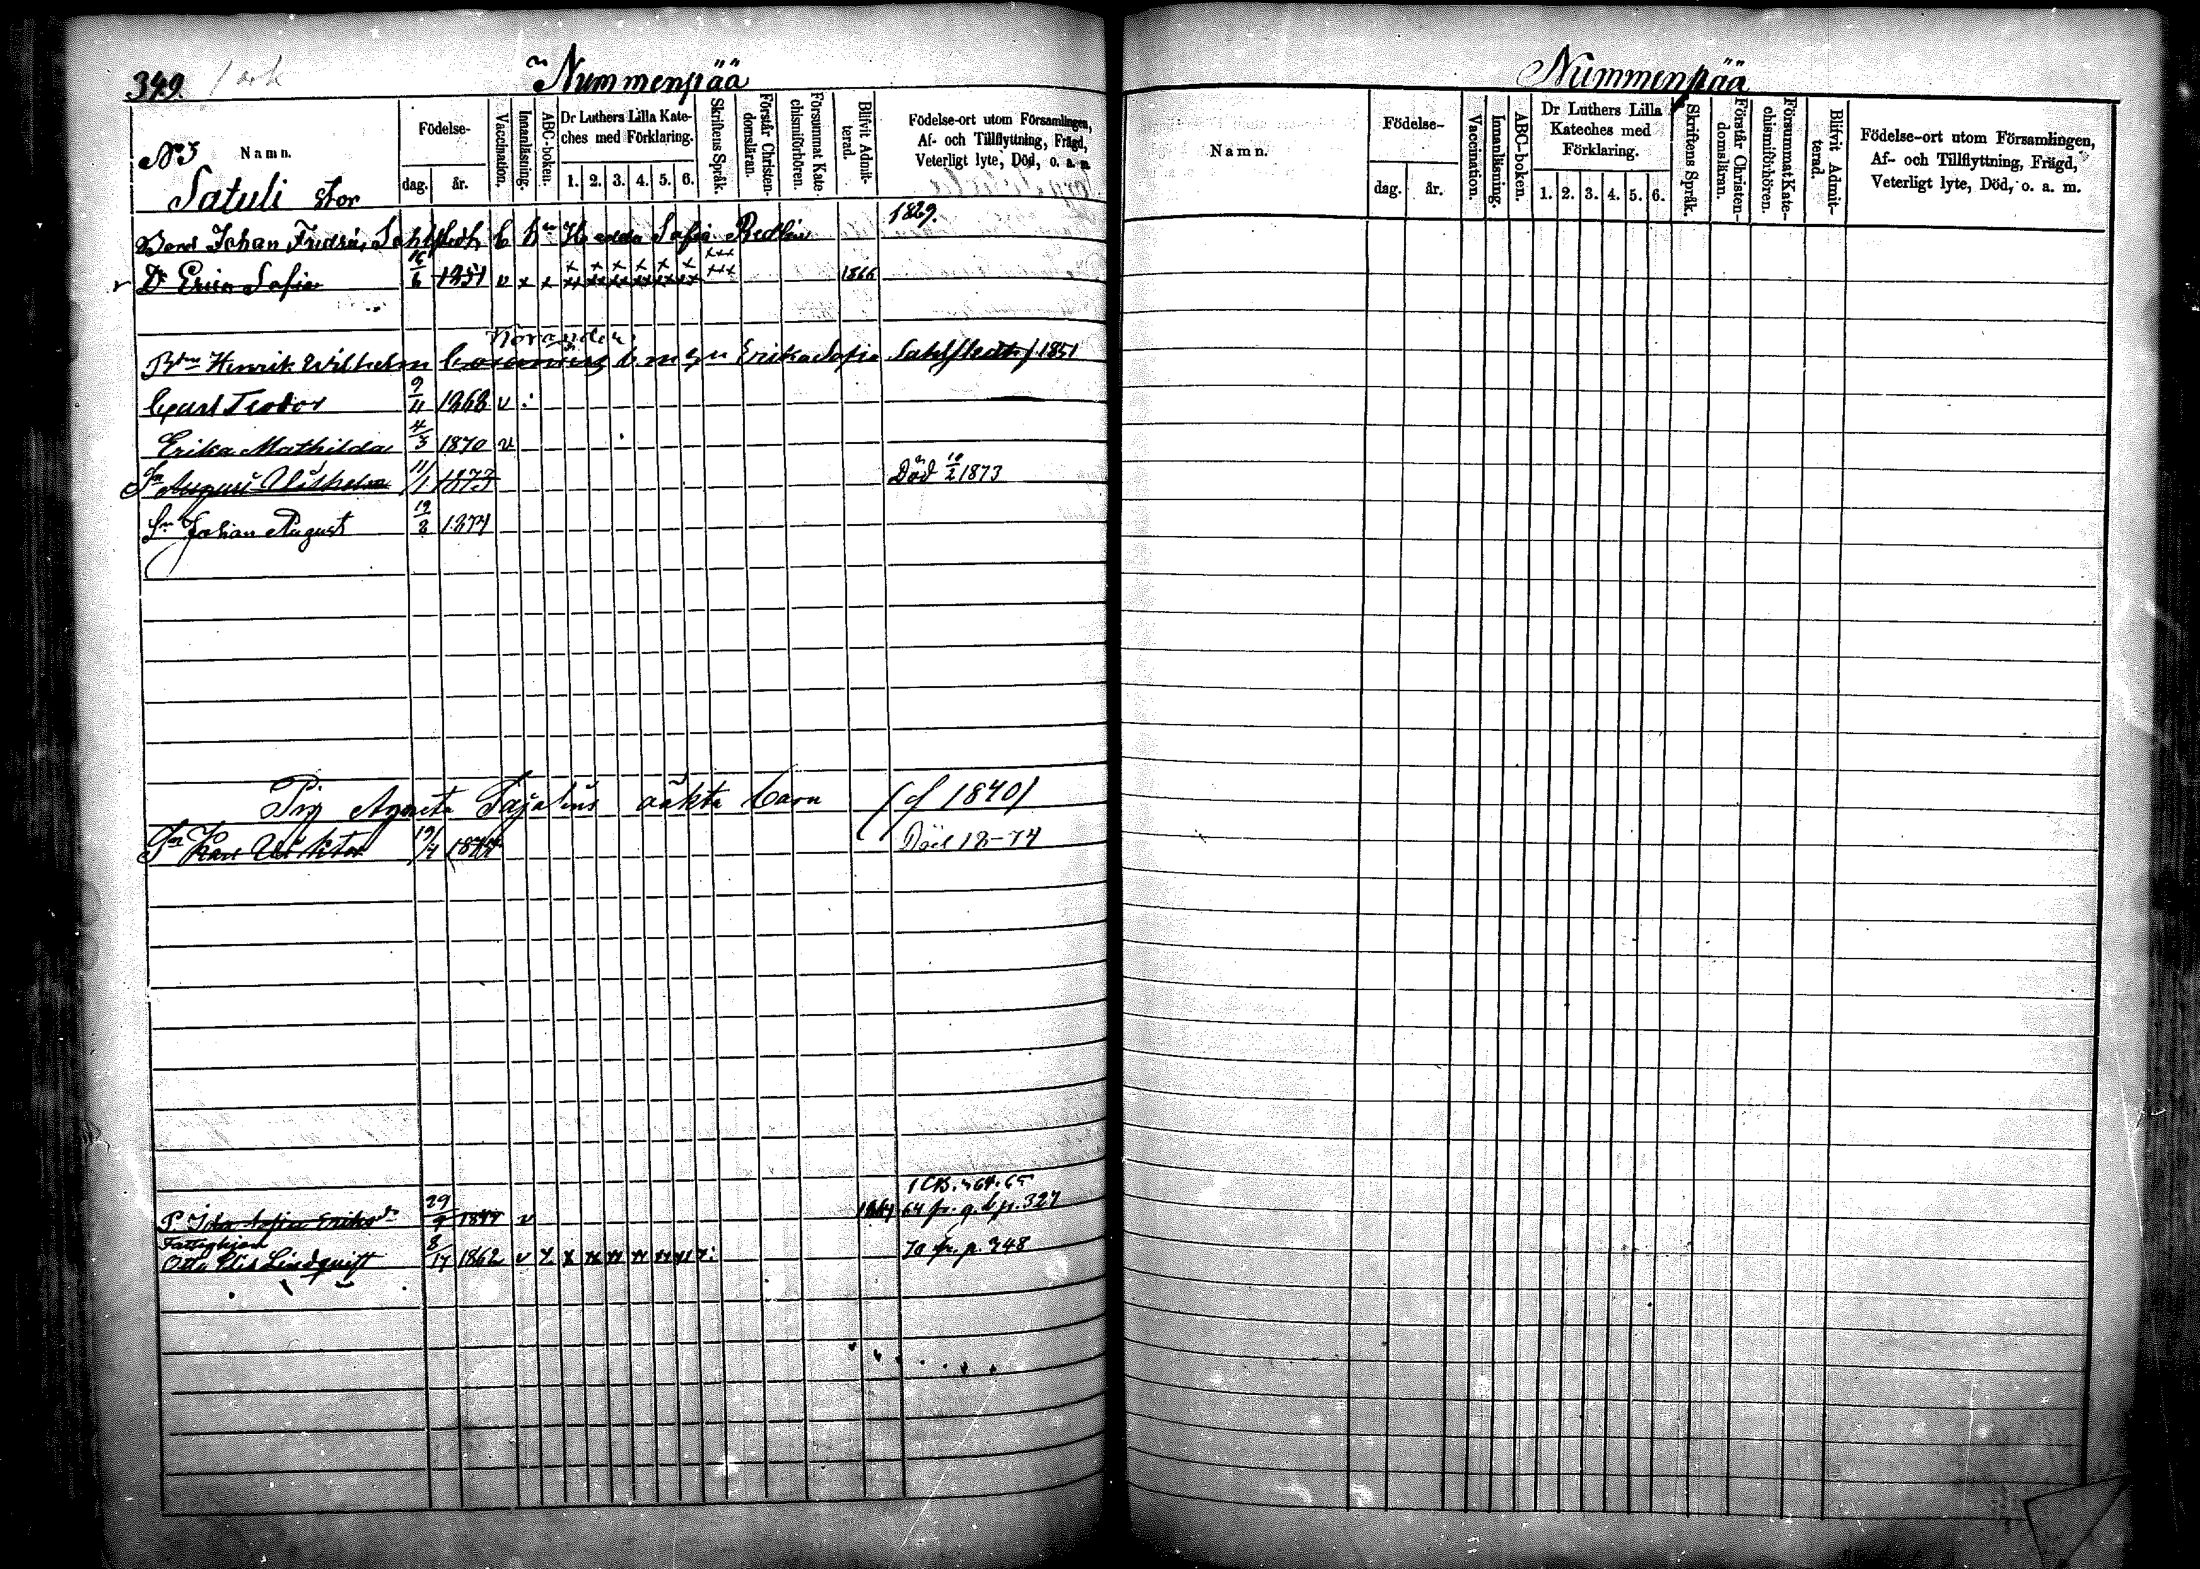 349.
Nummenpää
No 3
Namn.
Födelse-
dag. år.
Vaccination.
Innanläsning.
ABC-boken.
Dr Luthers Lilla Kate-
ches med Förklaring.
1. 2. 3. 4. 5. 6.
Skriftens Språk.
Förstår Christen-
domsläran.
Försummat Kate-
chismiförhören.
Blifvit Admit-
terad.
Födelse-ort utom Församlingen,
Af- och Tillflyttning, Frägd,
Veterligt lyte, Död, o. a. m.
Satuli Stor
Johan Sahlstedt Hedda Sofia 1829.
Dr Erica Sofia 16/6 1851 v x x 1866
Norander
Henrik Wilhelm Erika Sofia Sahlstedt f. 1851
Carl Teodor 9/11 1868 v
Erika Mathilda 4/3 1870 v
Sn August Wilhelm 11/1 1873 Död 10/2 1873
Sn Johan August 19/8 1874
Pig Agneta oäkta barn (f 1840)
Sn Karl Viktor 19/4 Död 18-74
P. Ida Sofia Eriksdr 29/9 v 64 fr. p. 327
Otto Lindquist 8/ 1862 v 70 fr. p. 348
Nummenpää
Namn.
Födelse-
dag. år.
Vaccination.
Innanläsning.
ABC-boken.
Dr Luthers Lilla
Kateches med
Förklaring.
1. 2. 3. 4. 5. 6.
Skriftens Språk.
Förstår Christen-
domsläran.
Försummat Kate-
chismiförhören.
Blifvit Admit-
terad.
Födelse-ort utom Församlingen,
Af- och Tillflyttning, Frägd,
Veterligt lyte, Död, o. a. m.